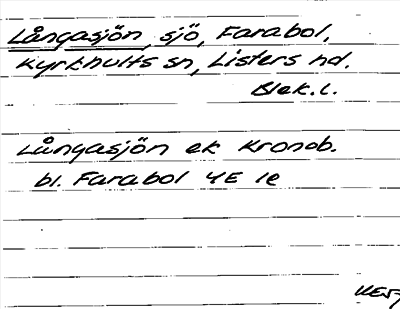 Långasjön, sjö, Farabol,
Kyrkhults sn, Listers hd.
Blek. l.
Långasjön ek Kronob.
bl. Farabol 4E 1e